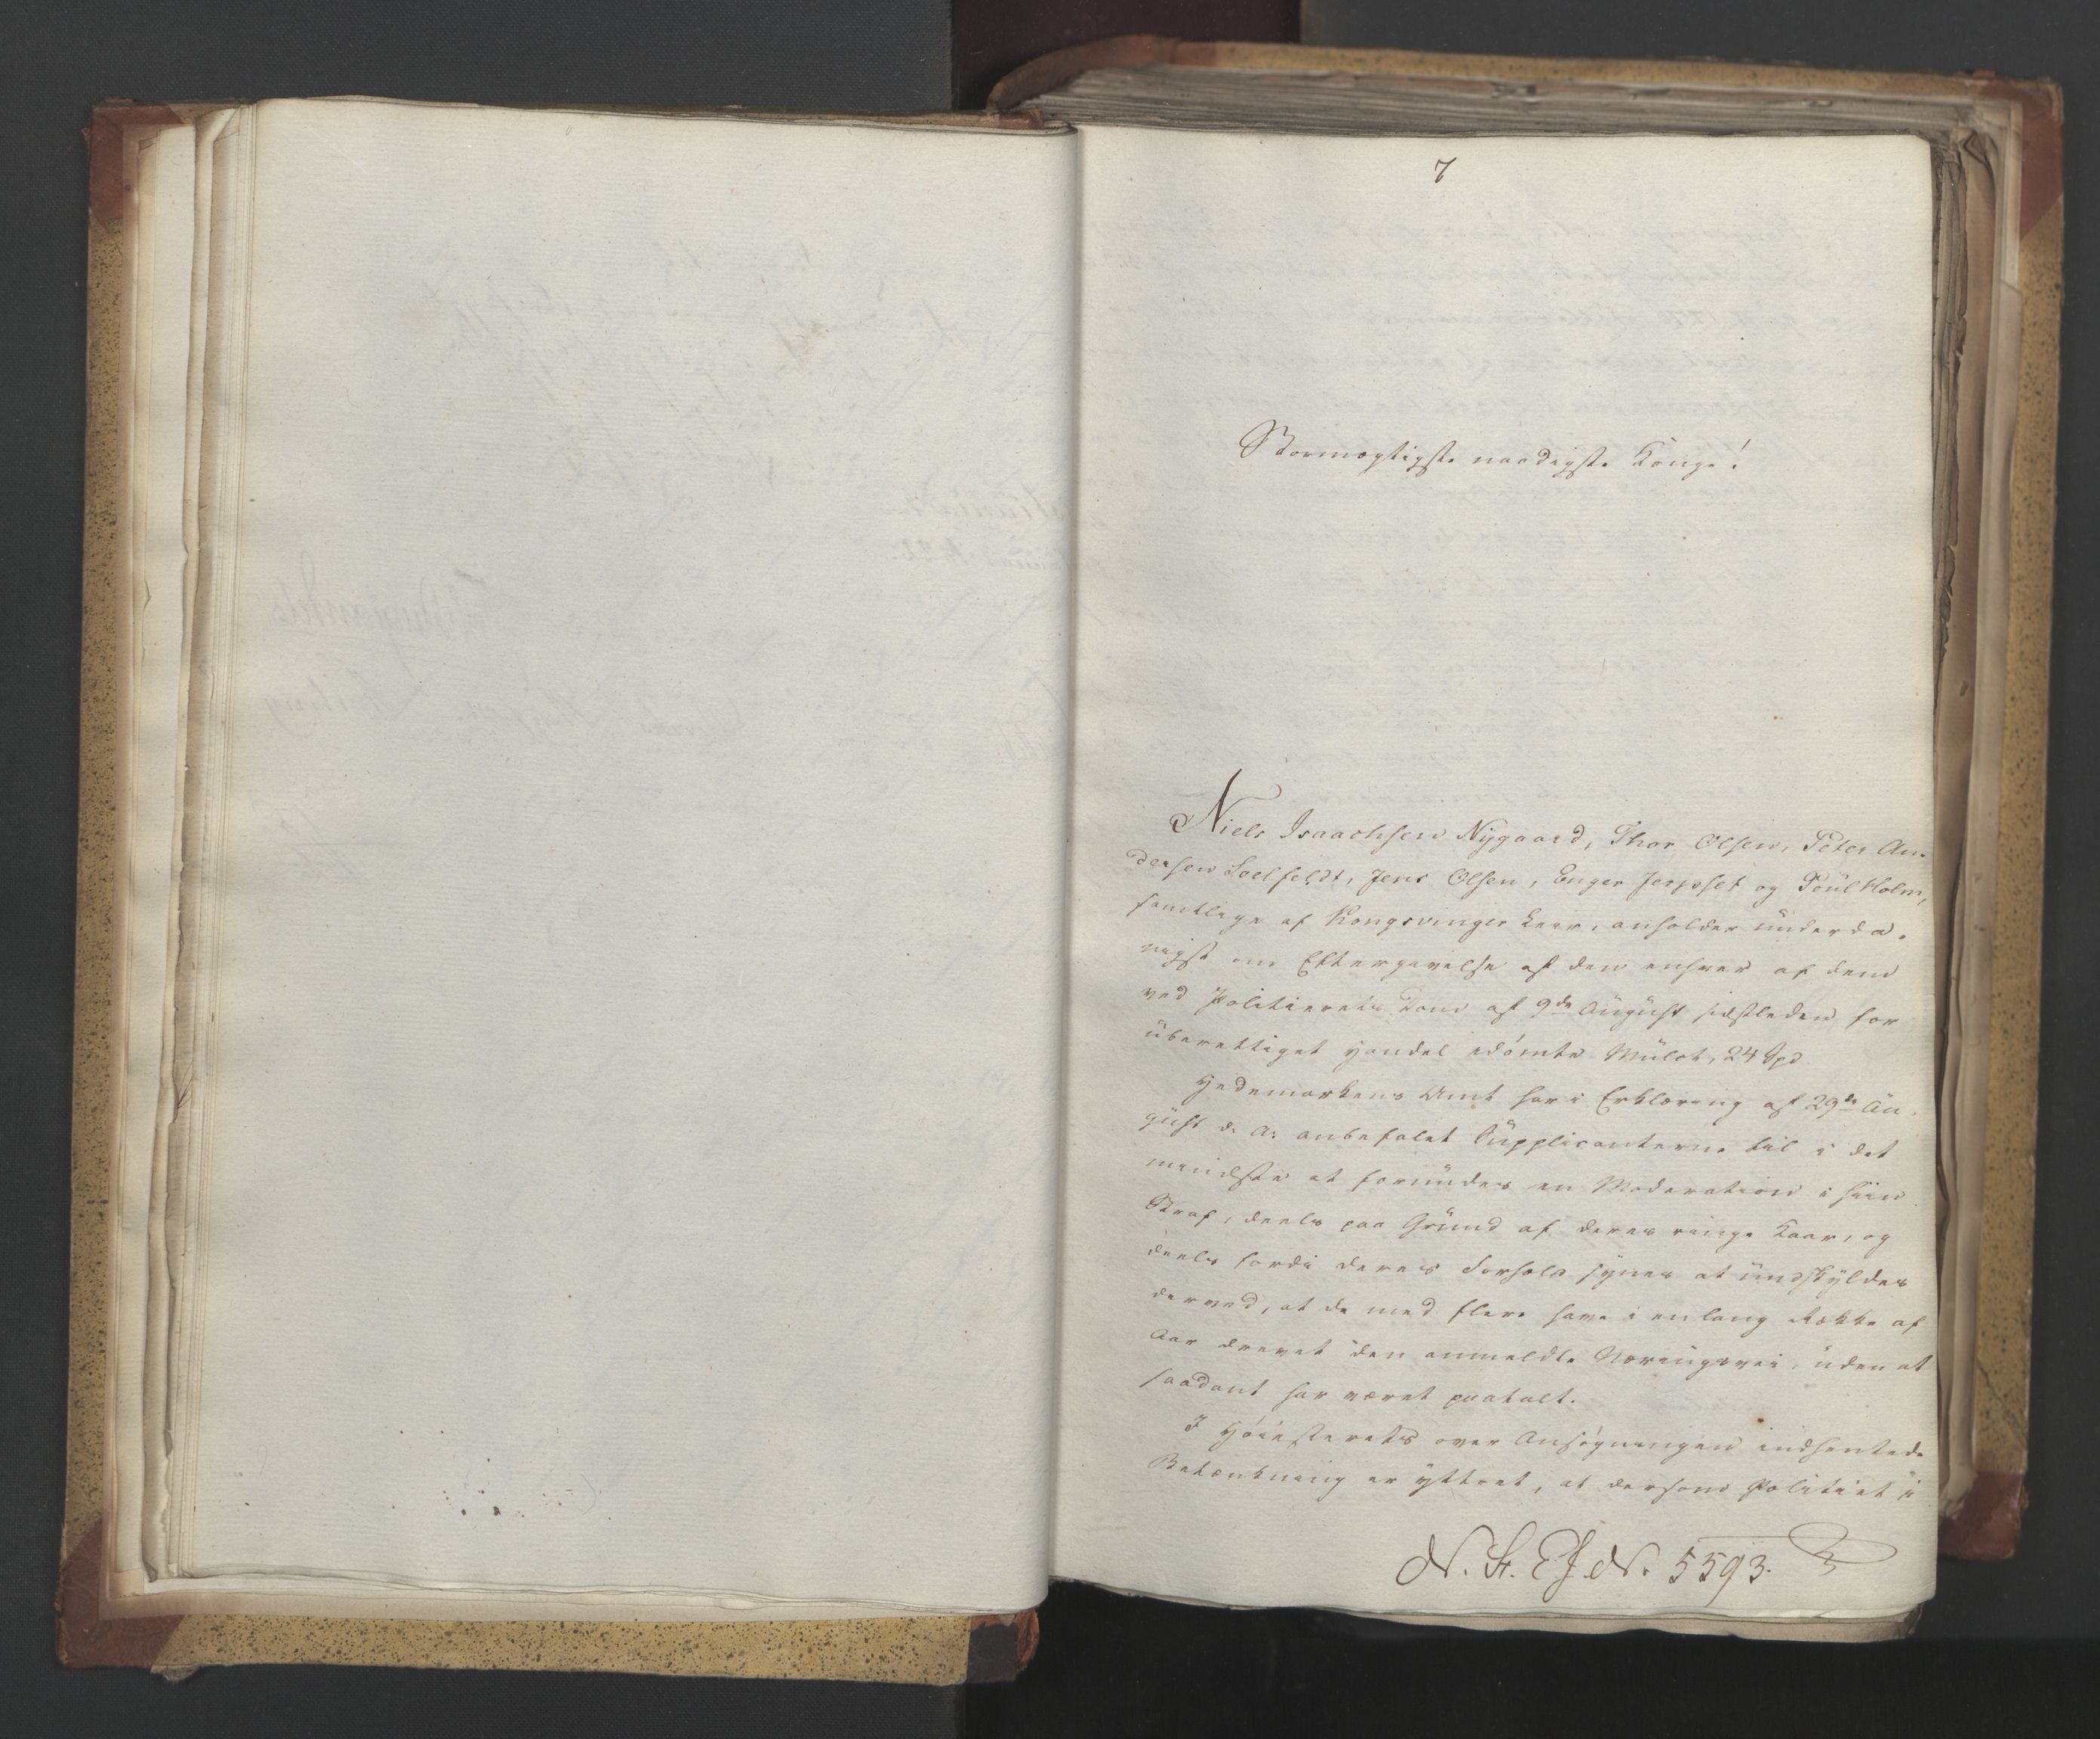 7
Stormægtigste naadigste Konge!
Niels Isaachsen Nygaard, Thor Olsen, Peter An-
dersen Soelfeldt, Jens Olsen, Enger Jerpset og Poul Holm,
samtlige af Kongsvinger Leir, anholder underda-
nigst om Eftergivelse af den enhver af dem
ved Politierets Dom af 9de August sidstleden for
uberettiget Handel idømte Mulct, 24 Spd
Hedemarkens Amt har i Erklæring af 29de Au-
gust d. A. anbefalet Supplicanterne til i det
mindste at forundes en Moderation i hiin
Straf, deels paa Grund af deres ringe Kaar, og
deels fordi deres Forhold synes at undskyldes
derved, at de med flere have i en lang Række af
Aar drevet den anmeldte Næringsvei, uden at
saadant har været paatalt.
I Høiesterets over Ansøgningen indhentede
Betænkning er yttret, at dersom Politiet i
N. St. E. J. N. 5593.